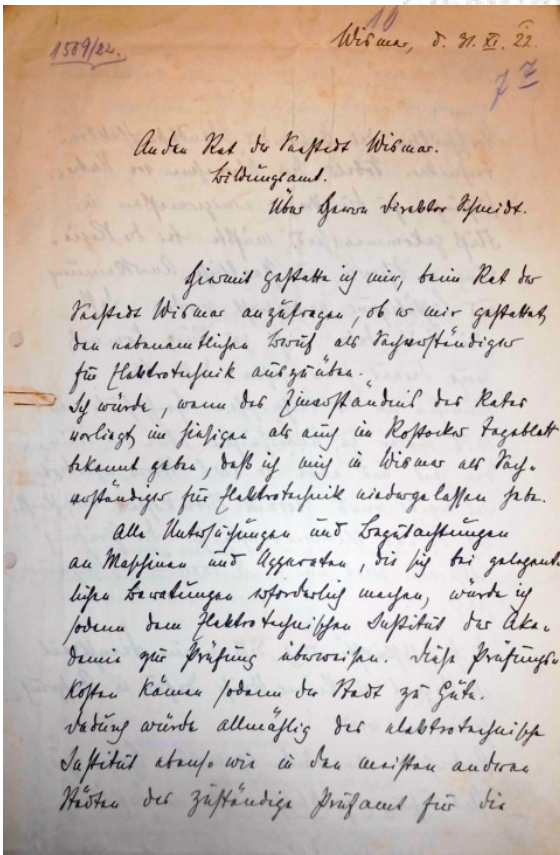 10
1509/22.
Wismar, d. 31. XI. 22.
An den Rat der Seestadt Wismar.
Bildungsamt.
Über Herrn Direktor Schmidt.
Hiermit gestatte ich mir, beim Rat der
Seestadt Wismar anzufragen, ob er mir gestattet,
den nebenamtlichen Beruf als Sachverständiger
für Elektrotechnik auszuüben.
Ich würde, wenn das Einverständnis des Rates
vorliegt, im hiesigen als auch im Rostocker Tageblatt
bekannt geben, daß ich mich in Wismar als Sach-
verständiger für Elektrotechnik niedergelassen habe.
Alle Untersuchungen und Begutachtungen
an Maschinen und Apparaten, die sich bei gelegent-
lichen Beratungen erforderlich machen, würde ich
sodann dem Elektrotechnischen Institut der Aka-
demie zur Prüfung überweisen. Diese Prüfungs-
kosten kämen sodann der Stadt zu Gute.
Dadurch würde allmählig das elektrotechnische
Institut ebenso wie in den meisten anderen
Städten das zuständige Prüfamt für die